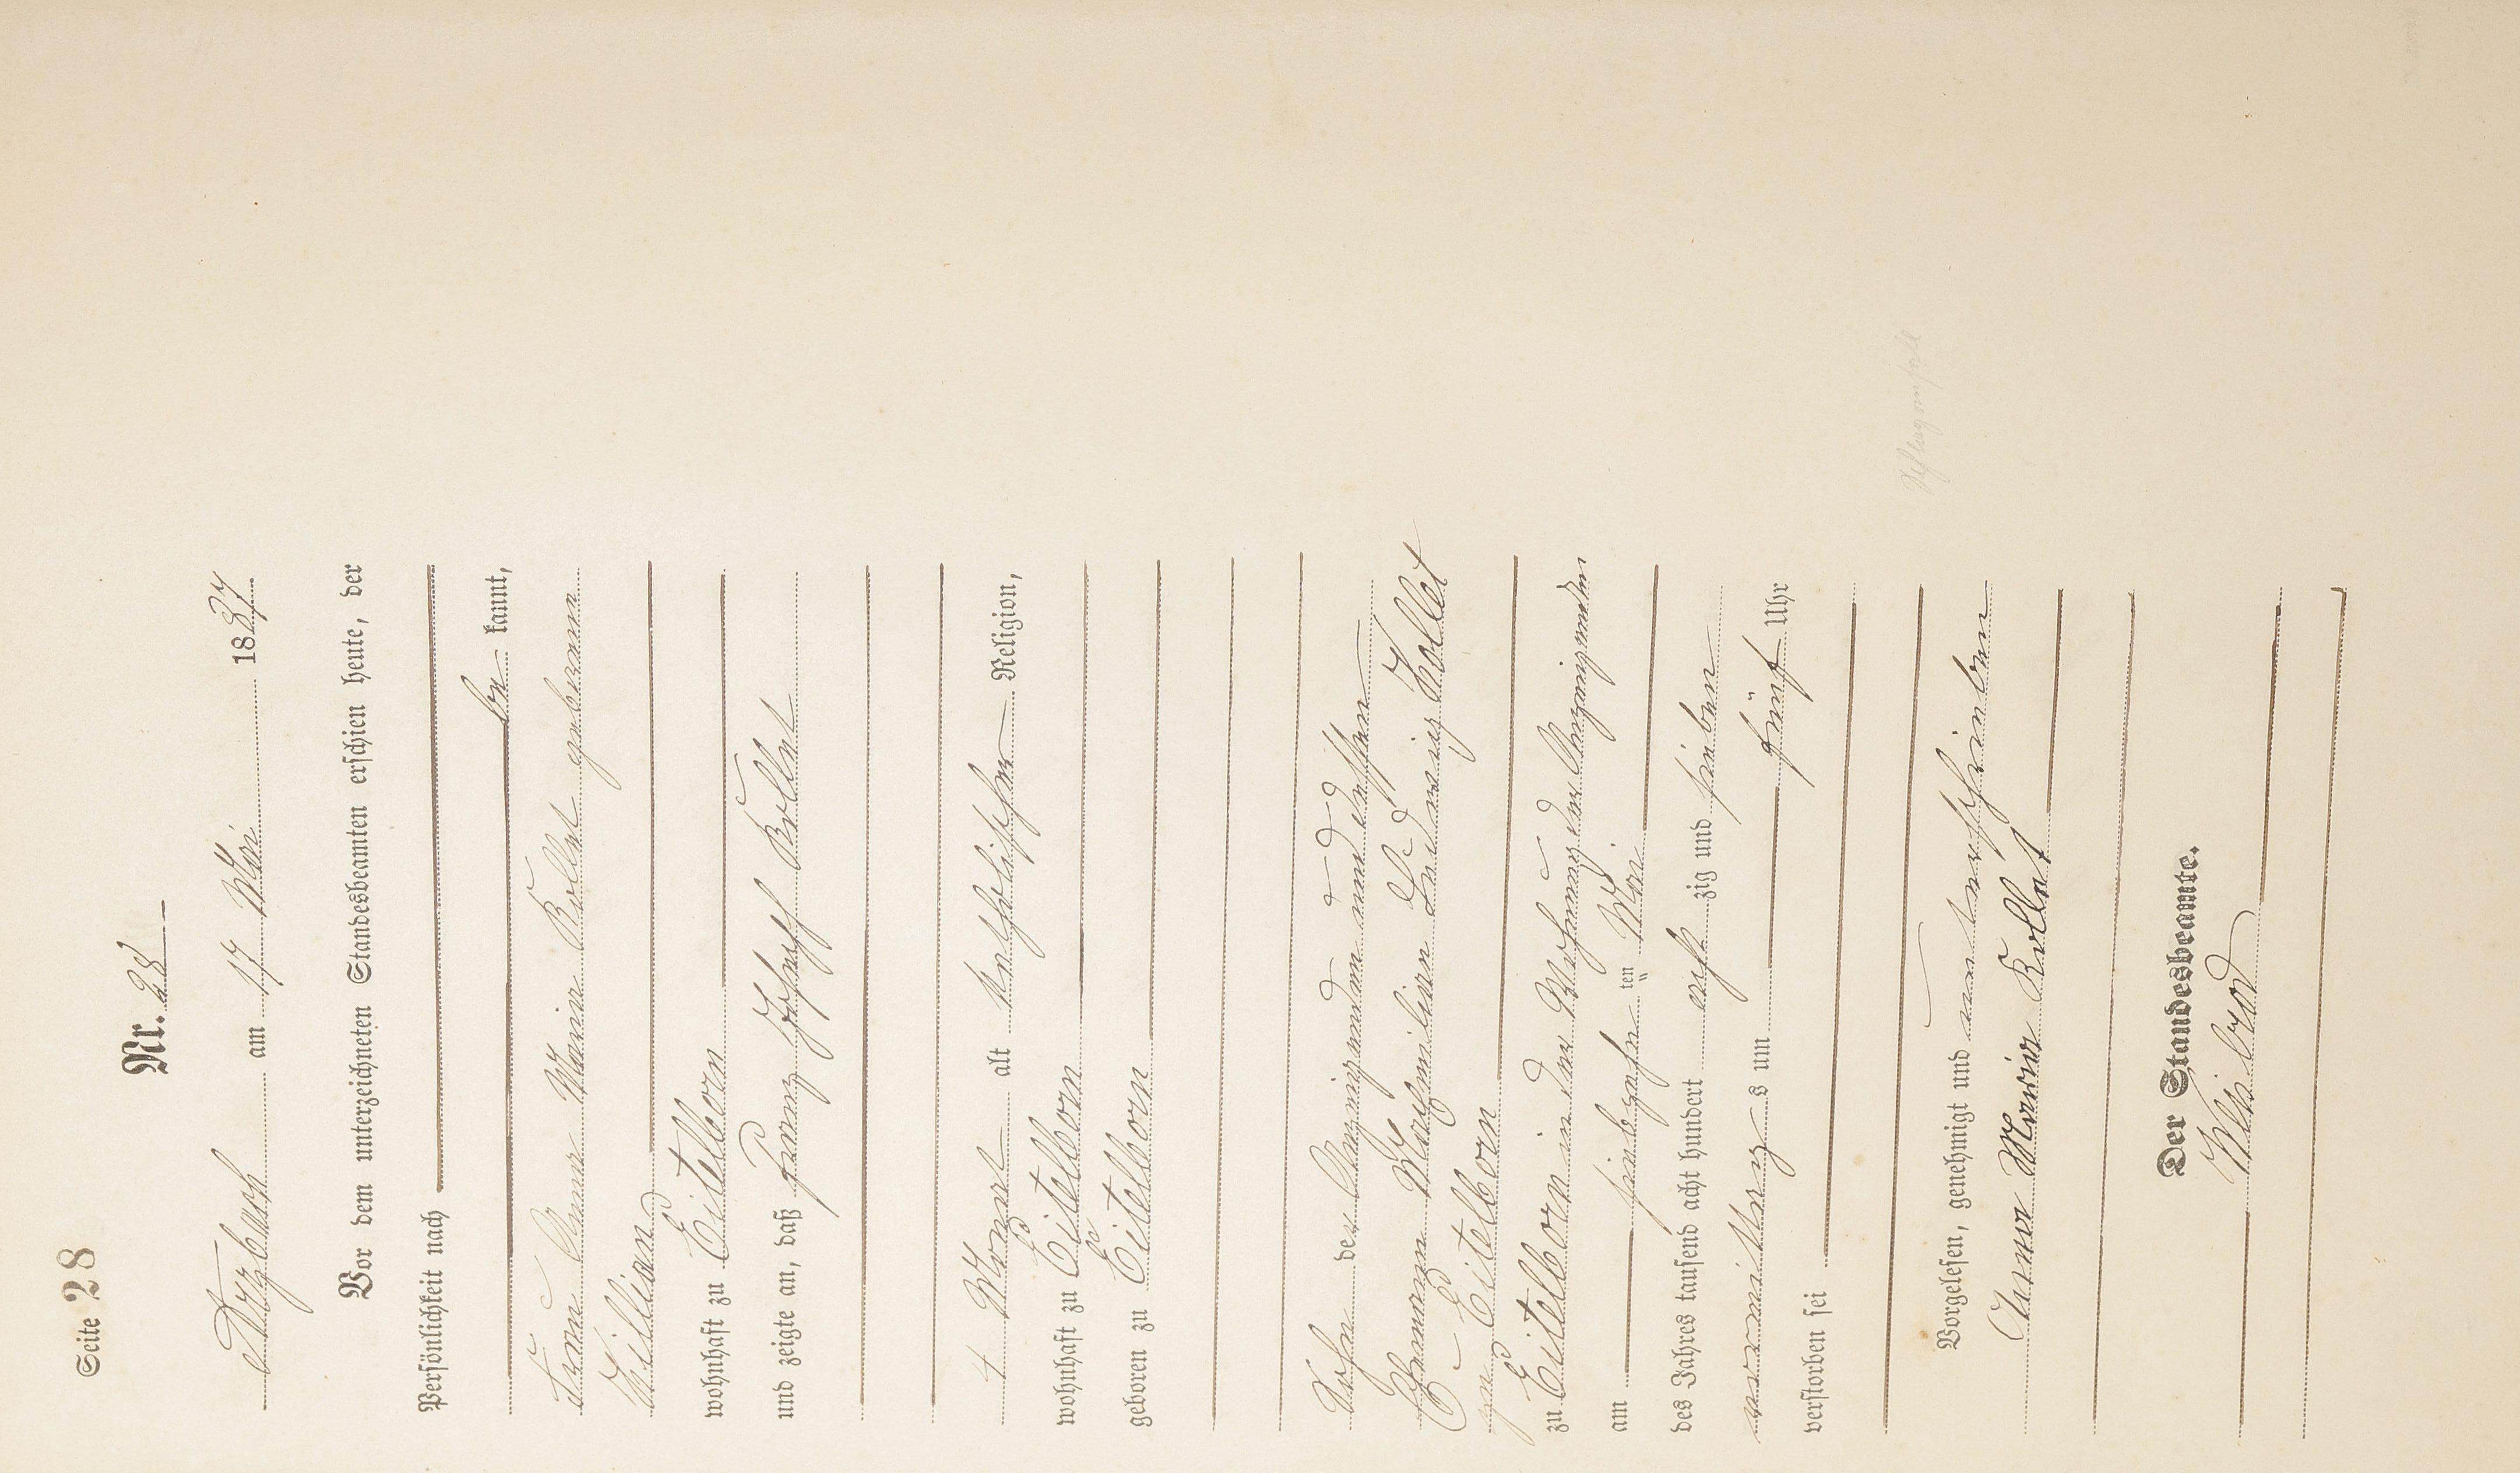 Seite 28
Nr. 28
Arzbach am 17 Mai 1887
Vor dem unterzeichneten Standesbeamten erschien heute, der
Persönlichkeit nach
be kannt,
Anna Maria Kollet geborene
Willian
wohnhaft zu Eitelborn
und zeigte an, daß Franz Joseph Kollet
4 Monat alt katholischer Religion,
wohnhaft zu Eitelborn
geboren zu Eitelborn
Sohn der Anzeigenden und dessen
Ehemann Maximilian Ludwig Kollet
zu Eitelborn
zu Eitelborn in der Wohnung der Anzeigenden
am siebzehn ten Mai
des Jahres tausend acht hundert acht zig und sieben
vormittags um fünf Uhr
verstorben sei
Vorgelesen, genehmigt und unterschrieben
Anna Maria Kollet
Der Standesbeamte.